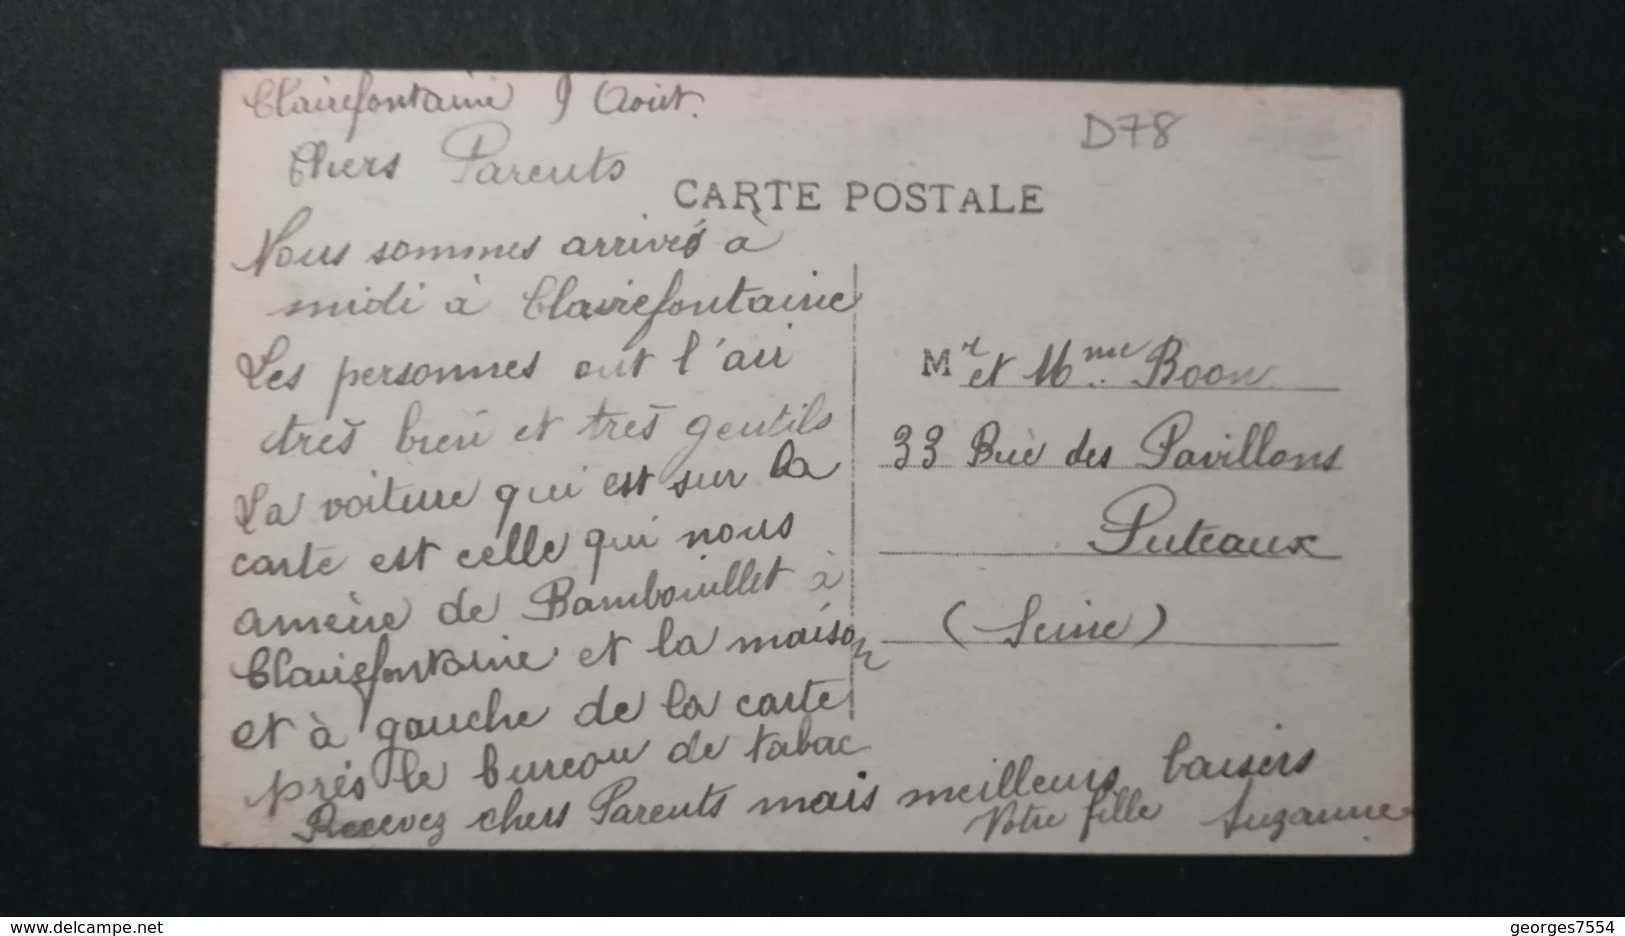 Clairefontaine 9 Août.
D78
Chers Parents
CARTE POSTALE
Nous sommes arrivés à
midi à Clairefontaine
Les personnes ont l'air
très bien et très gentils
La voiture qui est sur la
carte est celle qui nous
amène de Rambouillet à
Clairefontaine et la maison
et à gauche de la carte
près le bureau de tabac
Recevez chers Parents mais meilleurs baisers
Votre fille Suzanne
Mr et Mme Boon
33 Rue des Pavillons
Puteaux
(Seine)
delcampe.net
georges7554